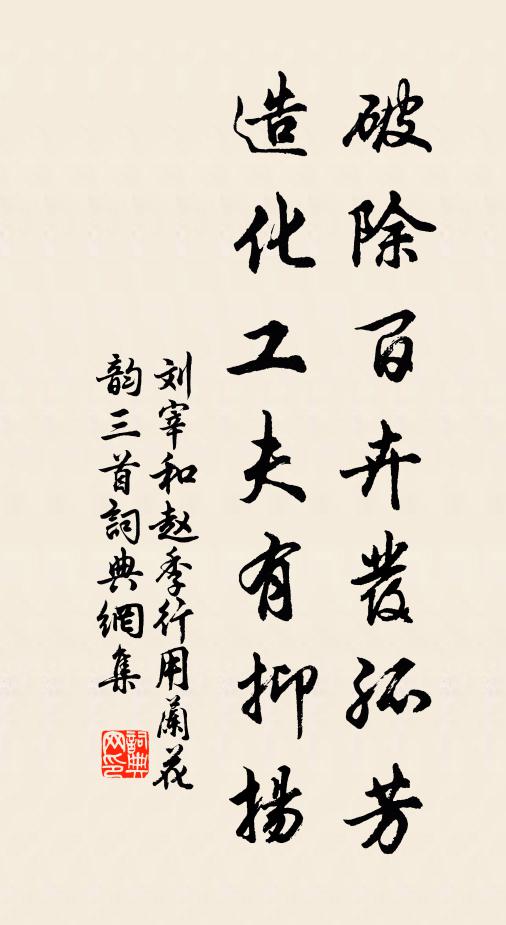 破除百卉發孤芳
造化工夫有抑揚
刘宰和赵季行用蘭花
韵三首詞典網集
詞典
网印